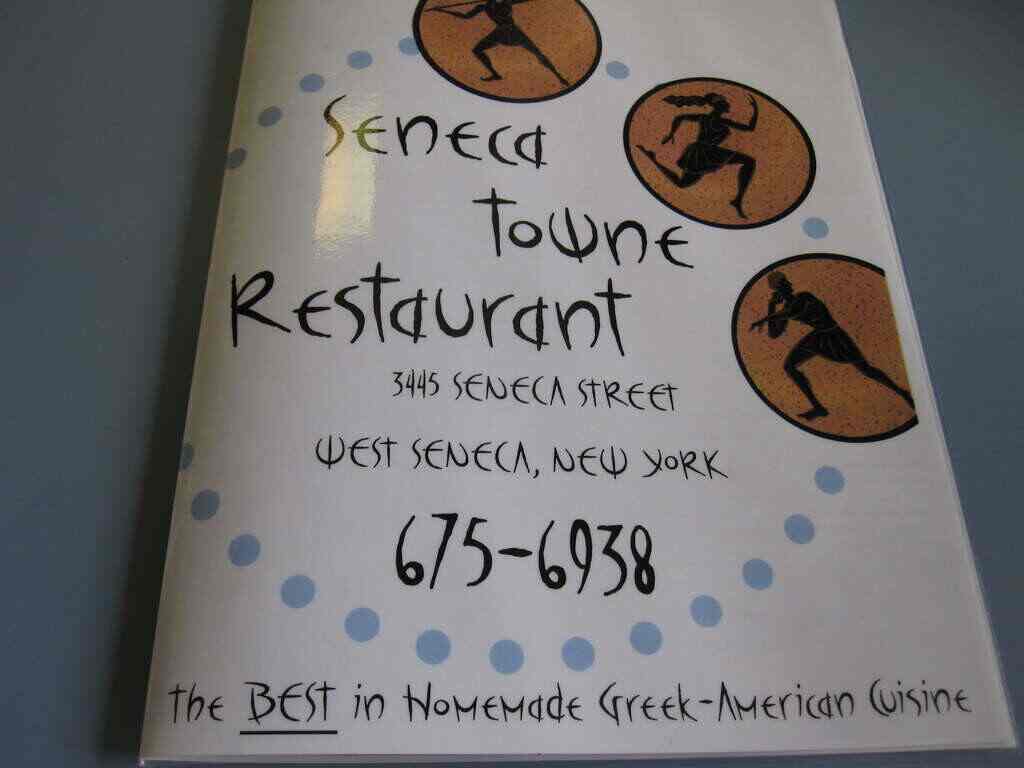 Seneca
Towne
Restaurant
3445 SENECA STREET
WEST SENECA, NEW YORK
675-6938
the BEST in Homemade Greek-American Cuisine